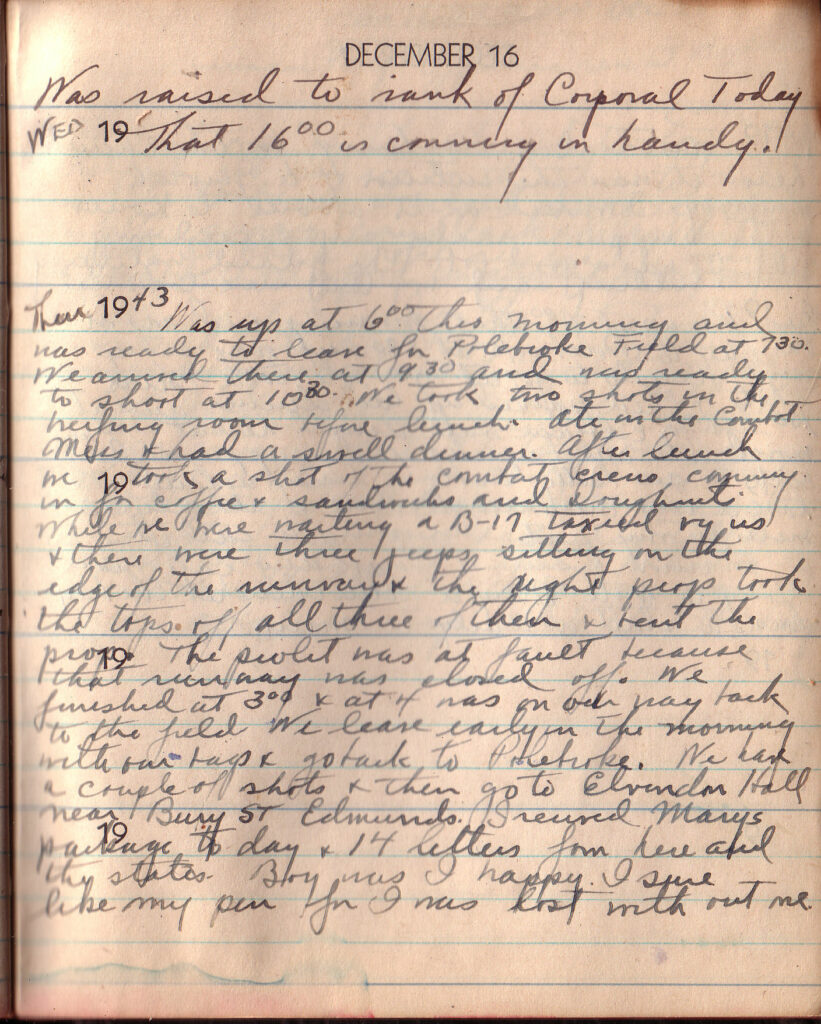 DECEMBER 16
Was raised to rank of Corporal Today
WED 19 That 16⁰⁰ is comming in handy.
Thur 1943 Was up at 6⁰⁰ this morning and
was ready to leave for Polebroke Field at 7³⁰.
We arrived there at 9³⁰ and was ready
to shoot at 10³⁰. We took two shots in the
breifing room before lunch. Ate in the Combat
Mess & had a swell dinner. After lunch
we took a shot of the combat crews comming
19
in for coffee & sandwichs and Doughnuts.
While we were waiting a B-17 taxied by us
& there were three jeeps sitting on the
edge of the runway & the right props took
the tops off all three of them & bent the
props. The piolit was at fault because
19
that runway was closed off. We
finished at 3⁰⁰ & at 4 was on our way back
to the field We leave early in the morning
with our bags & go back to Polebroke. We have
a couple of shots & then go to Elvendon Hall
near Bury St Edmunds. I recived Marys
19
package to day & 14 letters from here and
the states. Boy was I happy. I sure
like my pen for I was lost with out one